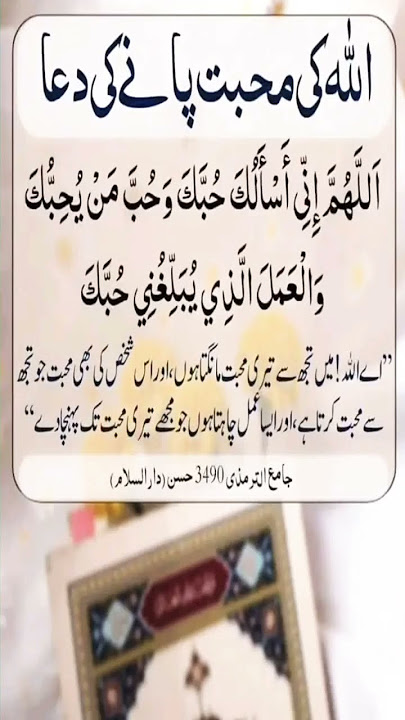 اللہ کی محبت پانے کی دعا
اَللَّهُمَّ إِنِّي أَسْأَلُكَ حُبَّكَ وَحُبَّ مَنْ يُحِبُّكَ
وَالْعَمَلَ الَّذِي يُبَلِّغُنِي حُبَّكَ
”اے اللہ! میں تجھ سے تیری محبت مانگتا ہوں، اور اس شخص کی بھی محبت جو تجھ
سے محبت کرتا ہے، اور ایسا عمل چاہتا ہوں جو مجھے تیری محبت تک پہنچا دے“
جامع الترمذی 3490 حسن (دارالسلام)